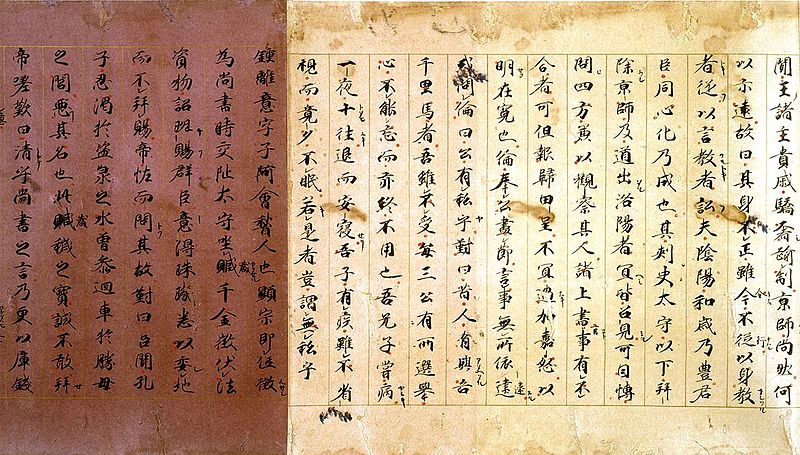 聞王諸主貴戚驕奢踰制京師尚然何
以示遠故曰其身不正雖令不従以身教
者従以言教者訟夫陰陽和歳乃豊君
臣同心化乃成也其刺史太守以下拜
除京師及道出洛陽者宜皆召見可因博
問四方兼以觀察其人諸上書事有不
合者可但報歸田里不宜過加喜怒以
明在寛也倫奉公盡節言事無所依違
或問倫曰公有私乎對曰昔人有與吾
千里馬者吾雖不受毎三公有所選舉
心不能忘而亦終不用也吾兄子甞病
一夜十往退而安寢吾子有疾雖不省
視而竟夕不眠若是者豈謂無私乎
鍾離意字子阿會稽人也顯宗即位徴
為尚書時交阯太守坐贓千金徴伏法
資物詔班賜群臣意得珠璣悉以委地
而不拜賜帝恠而問其故對曰臣聞孔
子忍渇於盗泉之水曽參迴車於勝母
之閭惡其名也此贓穢之寳誠不敢拜
帝嗟歎曰清乎尚書之言乃更以庫錢